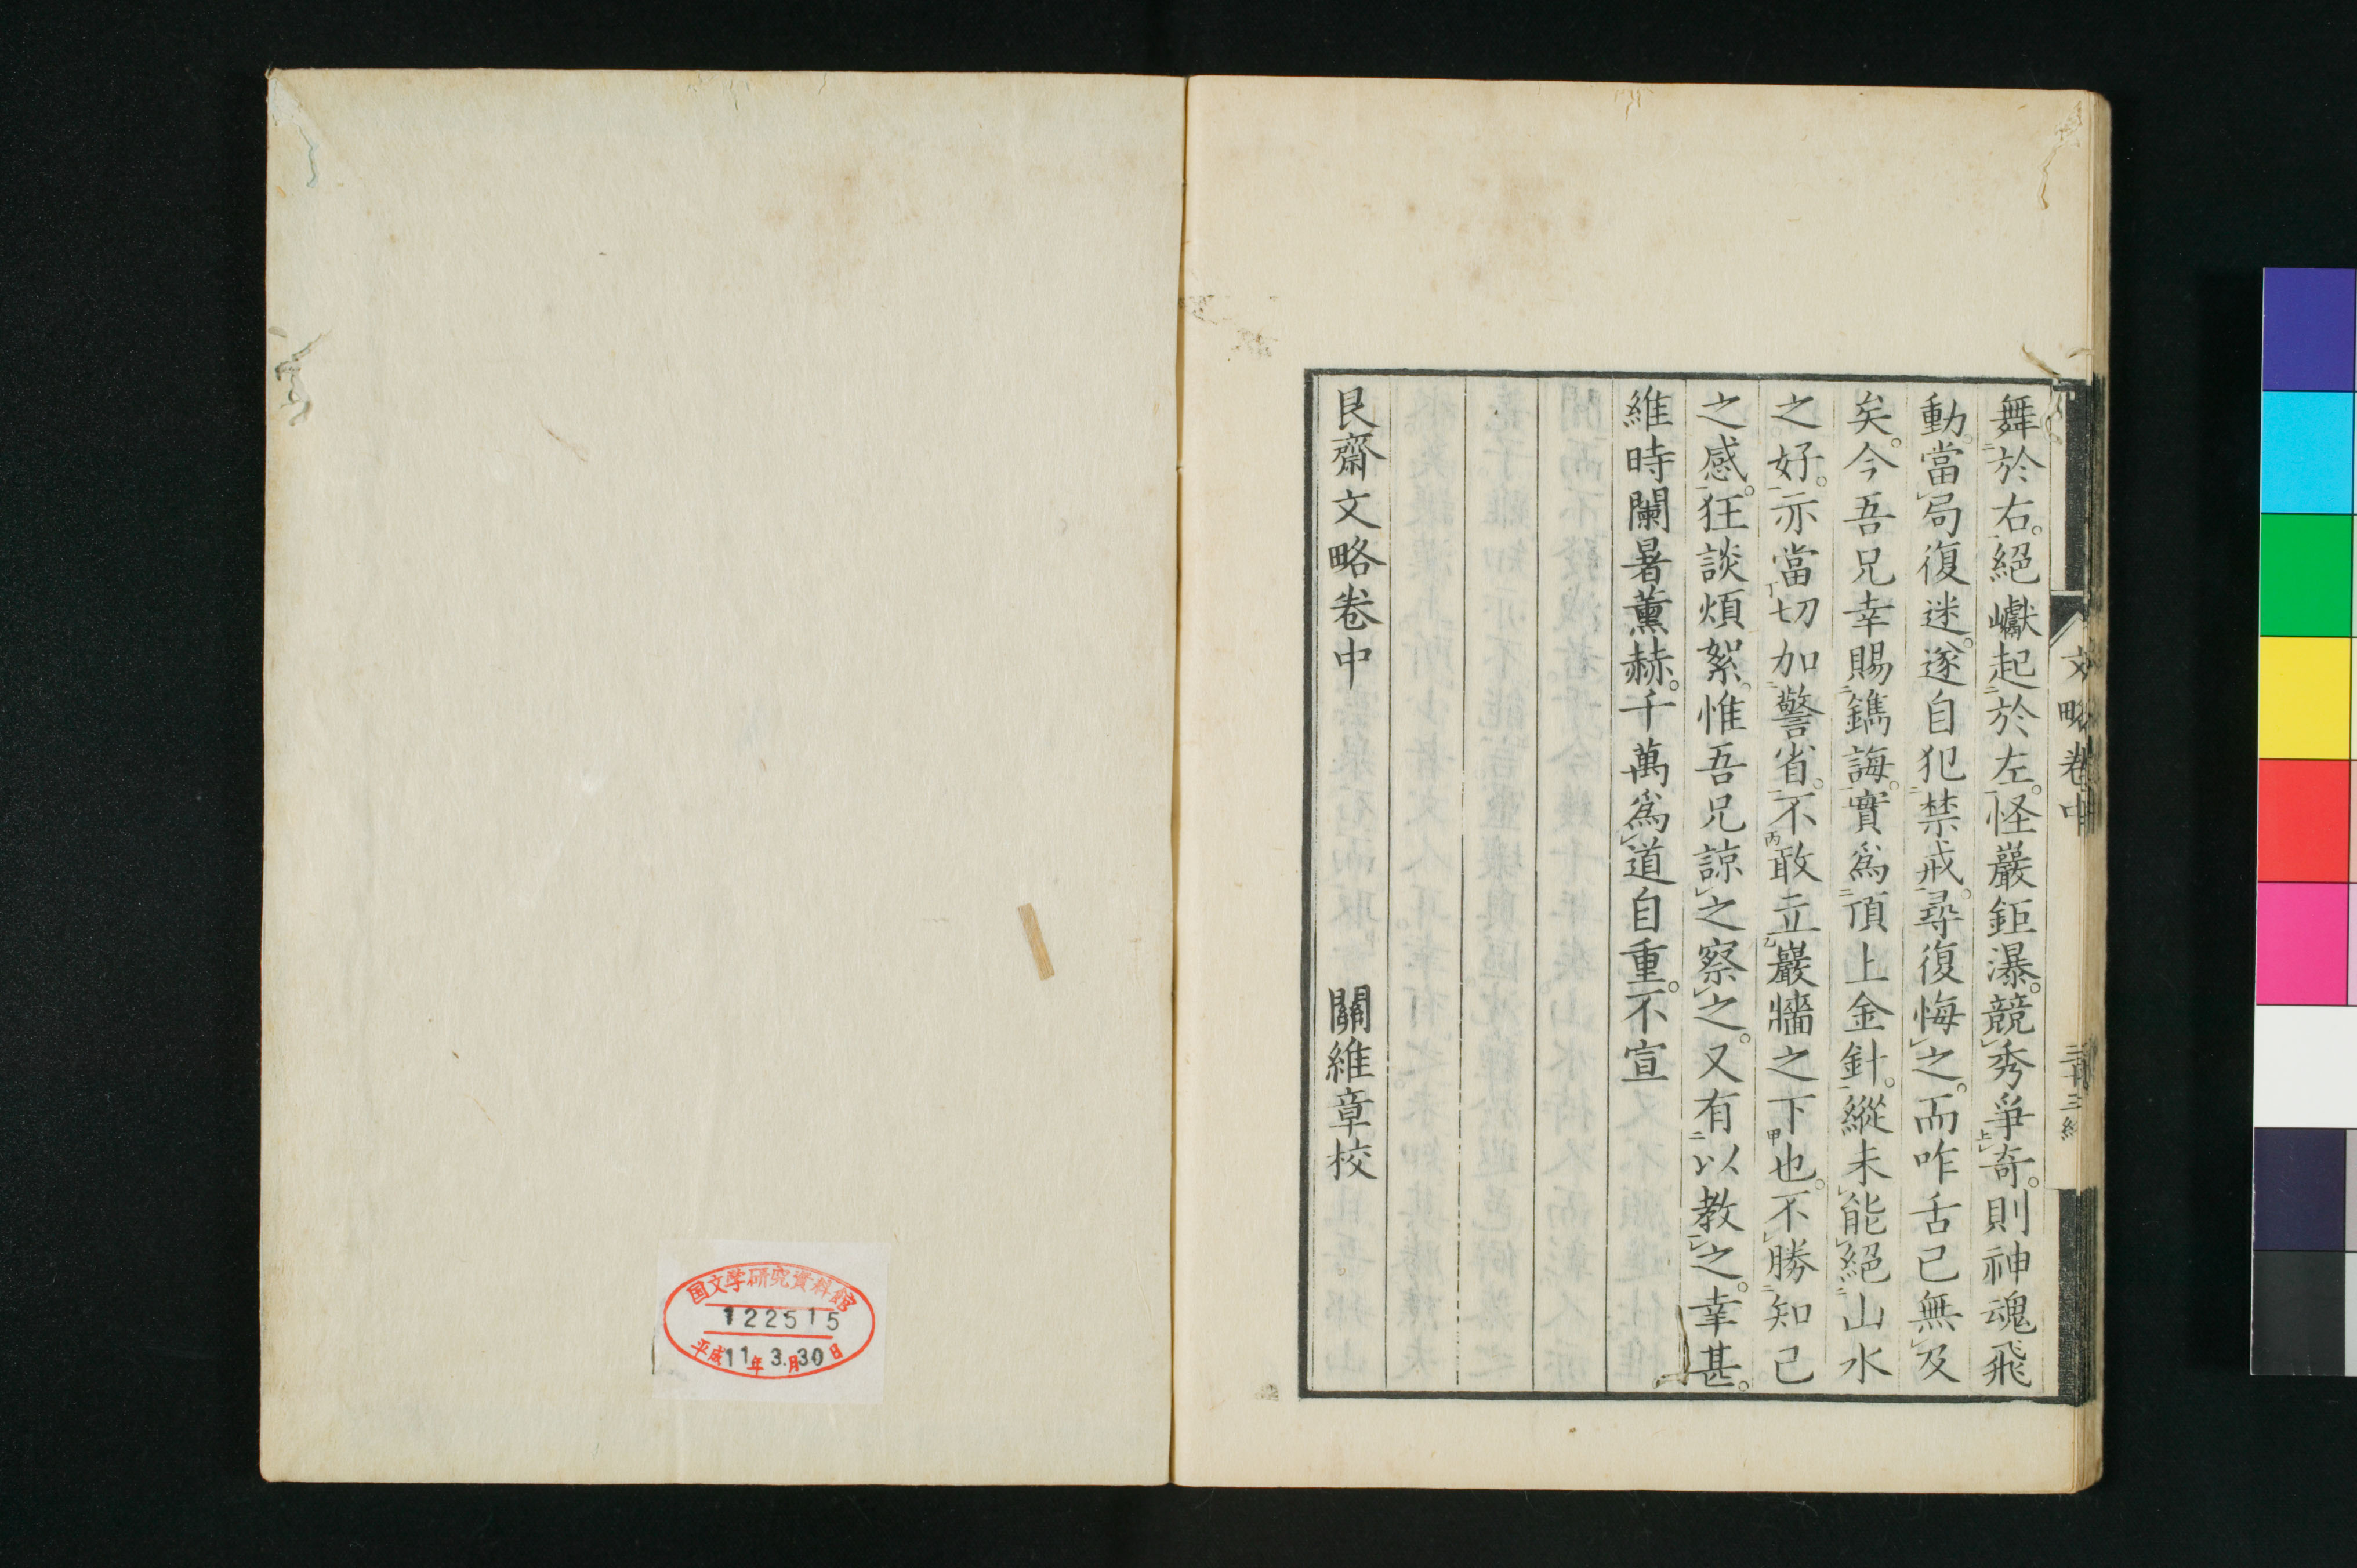 舞於右。絕巘起於左。怪巖鉅瀑。競秀爭奇。則神魂飛
動。當局復迷。遂自犯禁戒。尋復悔之。而咋舌已無及
矣。今吾兄幸賜鐫誨。實爲頂上金針。縱未能絕山水
之好。亦當切加警省。不敢立巖牆之下也。不勝知己
之感。狂談煩絮。惟吾兄諒之察之。又有以教之。幸甚。
維時闌暑薰赫。千萬爲道自重。不宣
艮齋文略卷中 關維章校
文略卷中
国文学研究資料館
122515
平成11年3.月30日